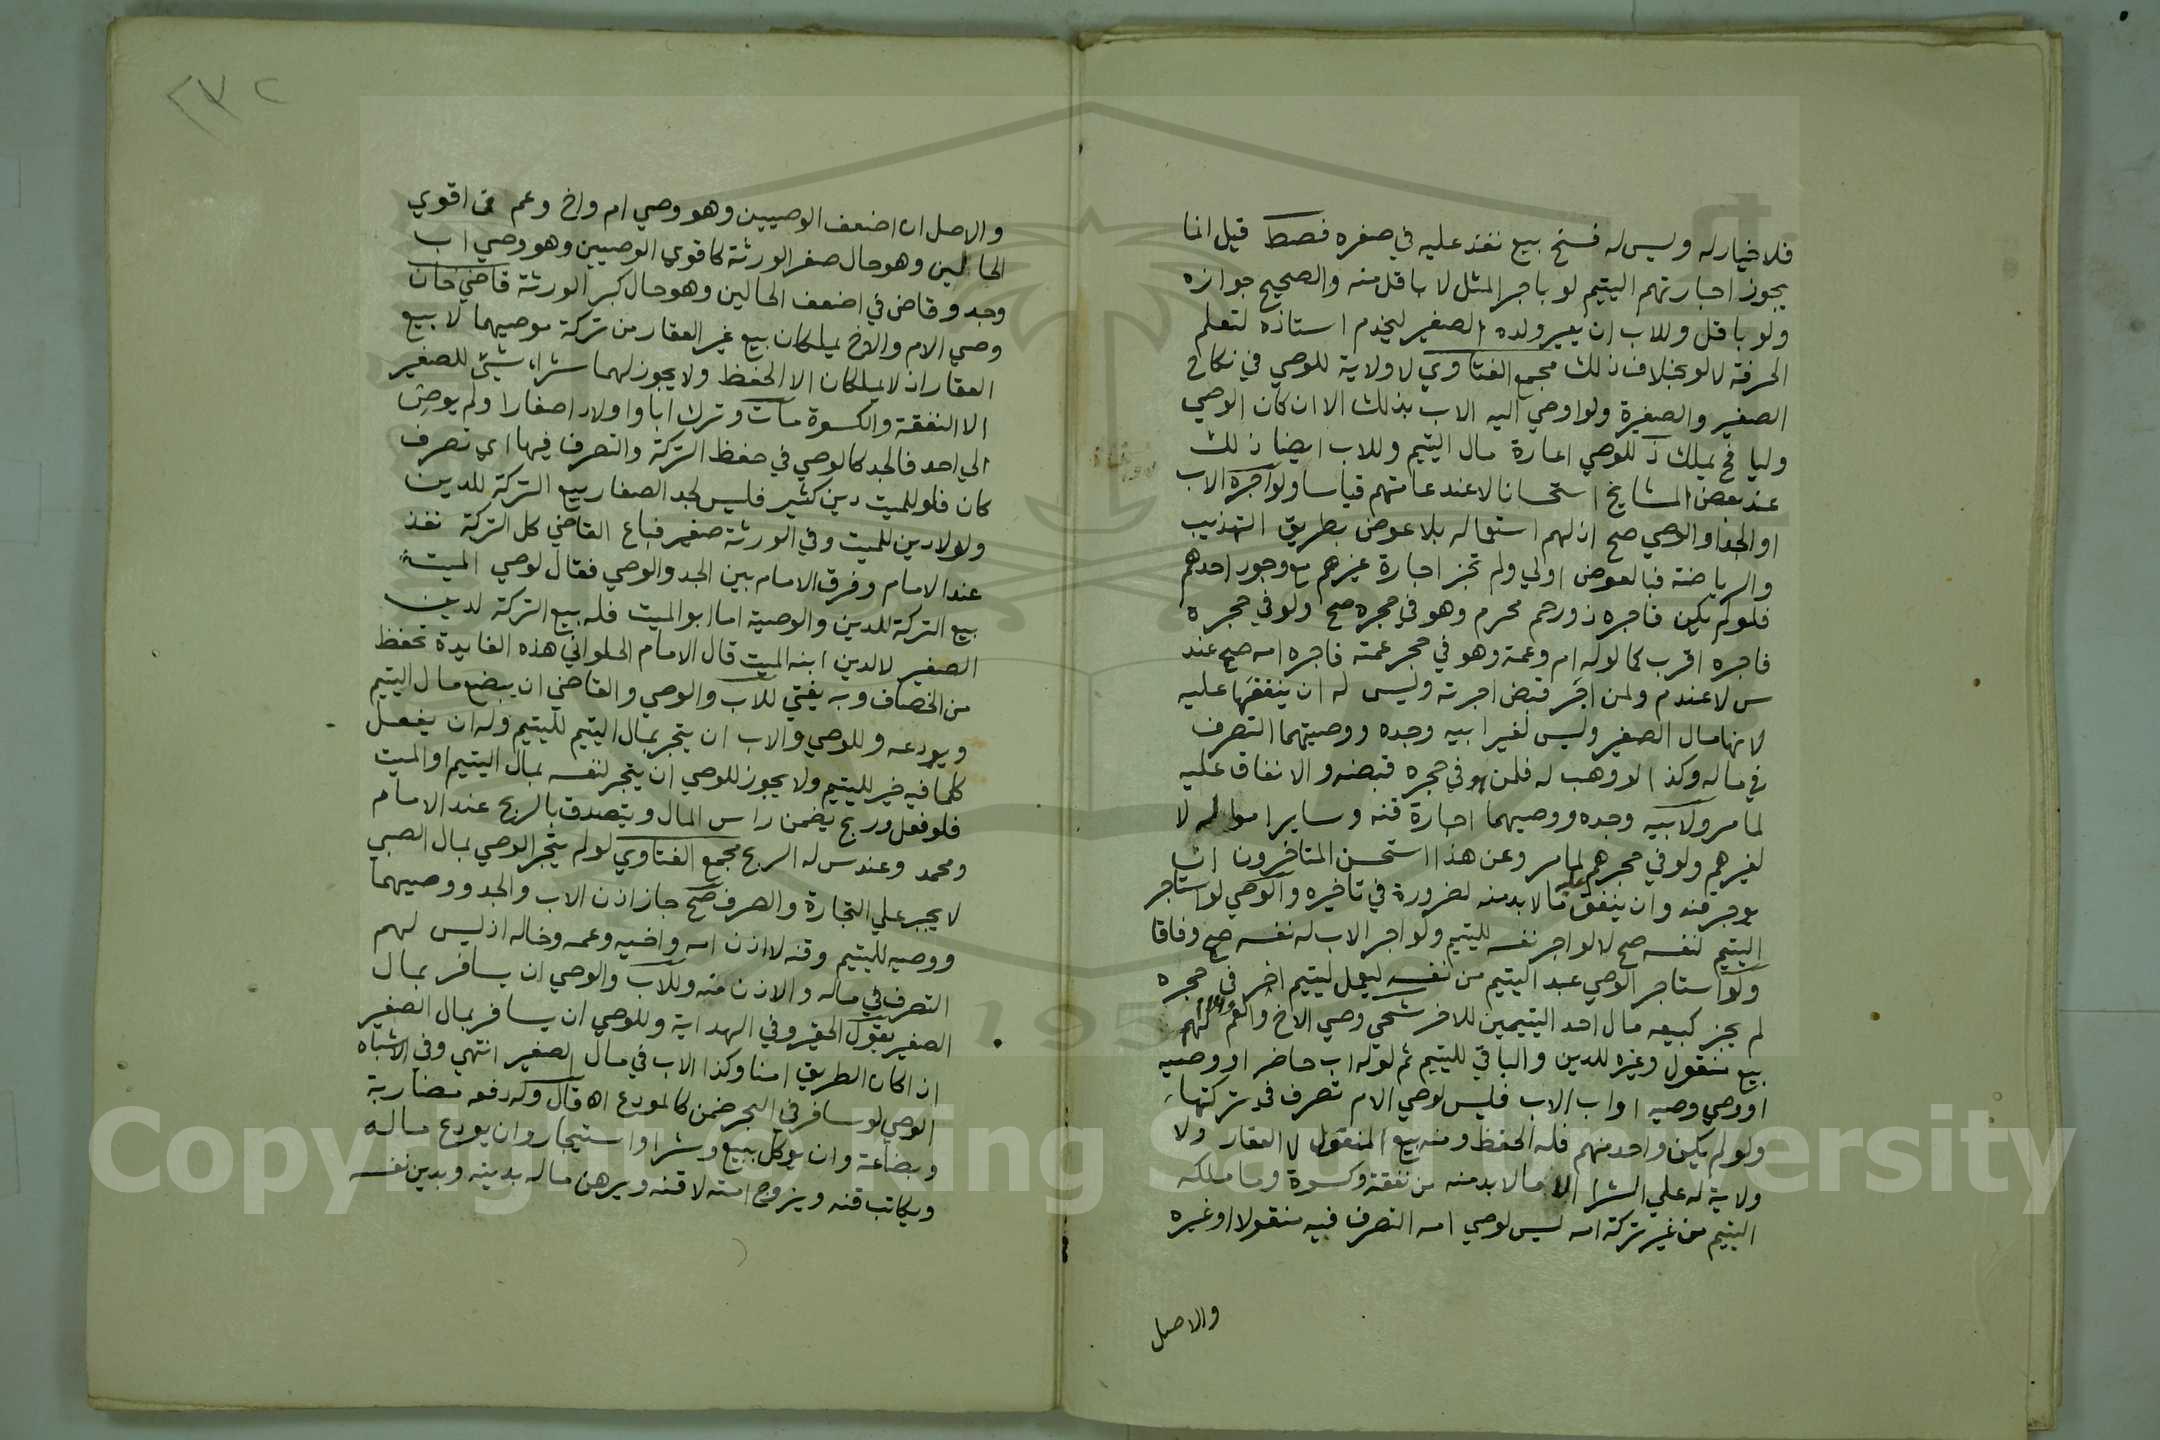 فلا خيار له وليس له فسخ بيع نفذ عليه في صغره فصط قيل انما
يجوز اجارتهم اليتيم لو باجر المثل لا باقل منه والصحيح جوازه
ولو باقل وللاب ان يعير ولده الصغير ليخدم استاذه لتعلم
الحرفة لا لو بخلاف ذلك مجمع الفتاوي لا ولاية للوصي في نكاح
الصغير والصغيرة ولو اوصي اليه الاب بذلك الا ان كان الوصي
وليا فح يملك ذ للوصي اعارة مال اليتيم وللاب ايضا ذلك
عند بعض المشايخ استحسانا لا عند عامتهم قياسا ولو آجره الاب
او الجد او الوصي صح اذ لهم استعماله بلا عوض بطريق التهذيب
والرياضة فبالعوض اولي ولم تجز اجارة غيرهم مع وجود احدهم
فلو لم يكن فاجره ذو رحم محرم وهو في حجره صح ولو في حجره
فاجره اقرب كما لو له ام وعمة وهو في حجر عمته فاجره امه صح عند
س لا عند م ولمن اجر قبض اجرته وليس له ان ينفقها عليه
لانها مال الصغير وليس لغير ابيه وجده ووصيهما التصرف
في ماله وكذا لو وهب له فلمن هو في حجره قبضه والانفاق عليه
لما مر ولابيه وجده ووصيهما اجارة قنه وساير امواله لا
لغيرهم ولو في حجرهم لما مر وعن هذا استحسن المتاخرون ان
يوجر قنه وان ينفق عليه ما لا بد منه لضرورة في تاخيره والوصي لو استاجر
اليتيم لنفسه صح لا لو اجر نفسه لليتيم ولو اجر الاب له نفسه صح وفاقا
ولو استاجر الوصي عبد اليتيم من نفسه ليعمل ليتيم اخر في حجره
لم يجز كبيعه مال احد اليتيمين للاخر شحي وصي الاخ والعم والام لهم
بيع منقول وغيره للدين والباقي لليتيم ثم لو له اب حاضر او وصيه
او وصي وصيه او اب الاب فليس لوصي الام تصرف في تركتها
ولو لم يكن واحد منهم فله الحفظ ومنه بيع المنقول لا العقار ولا
ولاية له علي الشرا الا ما لا بد منه من نفقة وكسوة وما ملكه
اليتيم من غير تركة امه ليس لوصي امه التصرف فيه منقولا او غيره
والاصل
٢٣٢
والاصل ان اضعف الوصيين وهو وصي ام واخ وعم في اقوي
الحالين وهو حال صغر الورثة كاقوي الوصيين وهو وصي اب
وجد وقاض في اضعف الحالين وهو حال كبر الورثة قاضي خان
وصي الام والاخ يملكان بيع غير العقار من تركة موصيهما لا بيع
العقار اذ لا يملكان الا الحفظ ولا يجوز لهما شراء شئ للصغير
الا النفقة والكسوة مات وترك ابا واولادا صغارا ولم يوص
الي احد فالجد كالوصي في حفظ التركة والتصرف فيها اي تصرف
كان فلو للميت دين كثير فليس لجد الصغار بيع التركة للدين
ولو لا دين للميت وفي الورثة صغير فباع القاضي كل التركة نفذ
عند الامام وفرق الامام بين الجد والوصي فقال لوصي الميت
بيع التركة للدين والوصية اما ابو الميت فله بيع التركة لدين
الصغير لا لدين ابنه الميت قال الامام الحلواني هذه الفايدة تحفظ
من الخصاف وبه يفتي للاب والوصي والقاضي ان يبضع مال اليتيم
ويودعه وللوصي والاب ان يتجر بمال اليتيم لليتيم وله ان يفعل
كلما فيه خير لليتيم ولا يجوز للوصي ان يتجر لنفسه بمال اليتيم او الميت
فلو فعل وربح يضمن راس المال ويتصدق بالربح عند الامام
ومحمد وعند س له الربح مجمع الفتاوي لو لم يتجر الوصي بمال الصبي
لا يجبر علي التجارة والصرف صح جاز اذن الاب والجد ووصيهما
ووصيه لليتيم وقنه لا اذن امه واخيه وعمه وخاله اذ ليس لهم
التصرف في ماله والاذن منه وللاب والوصي ان يسافر بمال
الصغير يقول الحقير وفي الهداية وللوصي ان يسافر بمال الصغير
اذا كان الطريق امنا وكذا الاب في مال الصغير انتهي وفي الاشباه
الوصي لو سافر في البحر ضمن كالمودع اه قال وله دفعه مضاربة
وبضاعة وان يوكل ببيع وشرا واستيجار وان يودع ماله
ويكاتب قنه ويزوج امته لا قنه ويرهن ماله بدينه وبدين نفسه
Copyright © King Saud University
1957